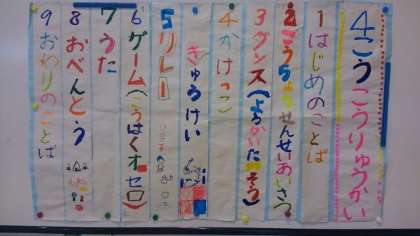 4こうこうりゅうかい
1はじめのことば
2こうちょうせんせいあいさつ
3ダンス(ようかいたいそう)
4かけっこ
きゅうけい
5リレー
6ゲーム(こうはくオセロ)
7うた
8おべんとう
9おわりのことば